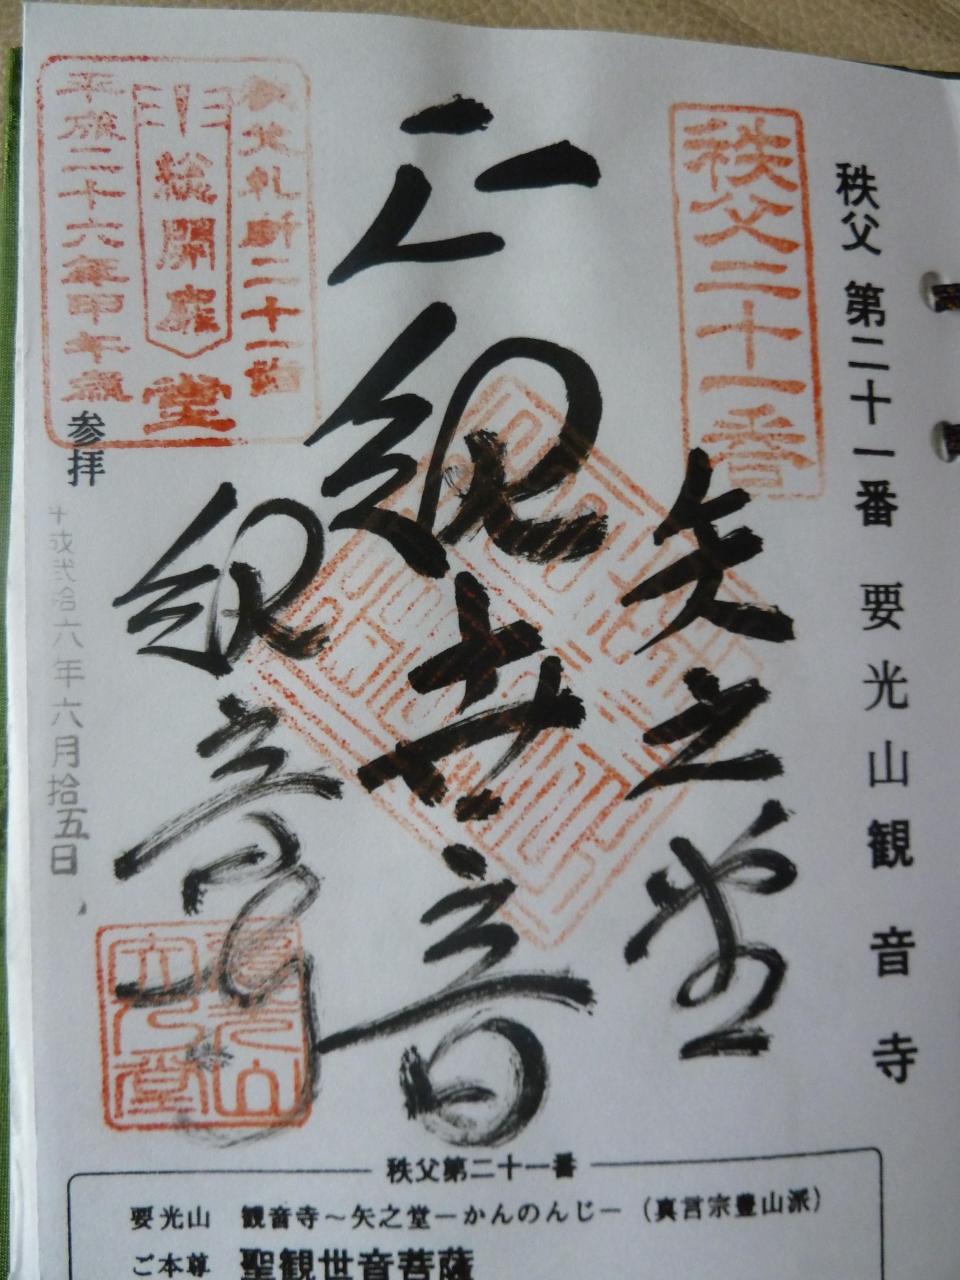 秩父 第二十一番 要光山観音寺
秩父二十一番
矢之堂
正観世音
観音寺
秩父札所二十一番
総開扉
堂
平成二十六年甲午歳
参拝
平成弐拾六年六月拾五日
秩父第二十一番
要光山 観音寺～矢之堂－かんのんじ－（真言宗豊山派）
ご本尊 聖観世音菩薩